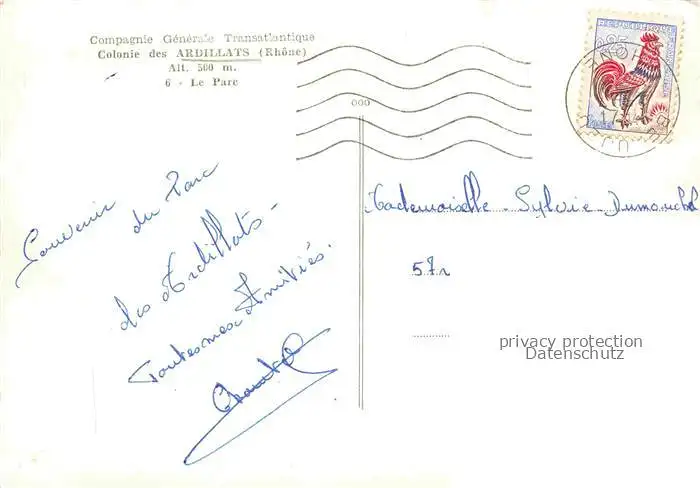 Compagnie Générale Transatlantique
Colonie des ARDILLATS (Rhône)
Alt. 500 m.
6 - Le Parc
000
Souvenir du Parc
des Ardillats -
Toutes mes Amitiés.
Chantal
Mademoiselle - Sylvie Dumouchel
57r
privacy protection
Datenschutz